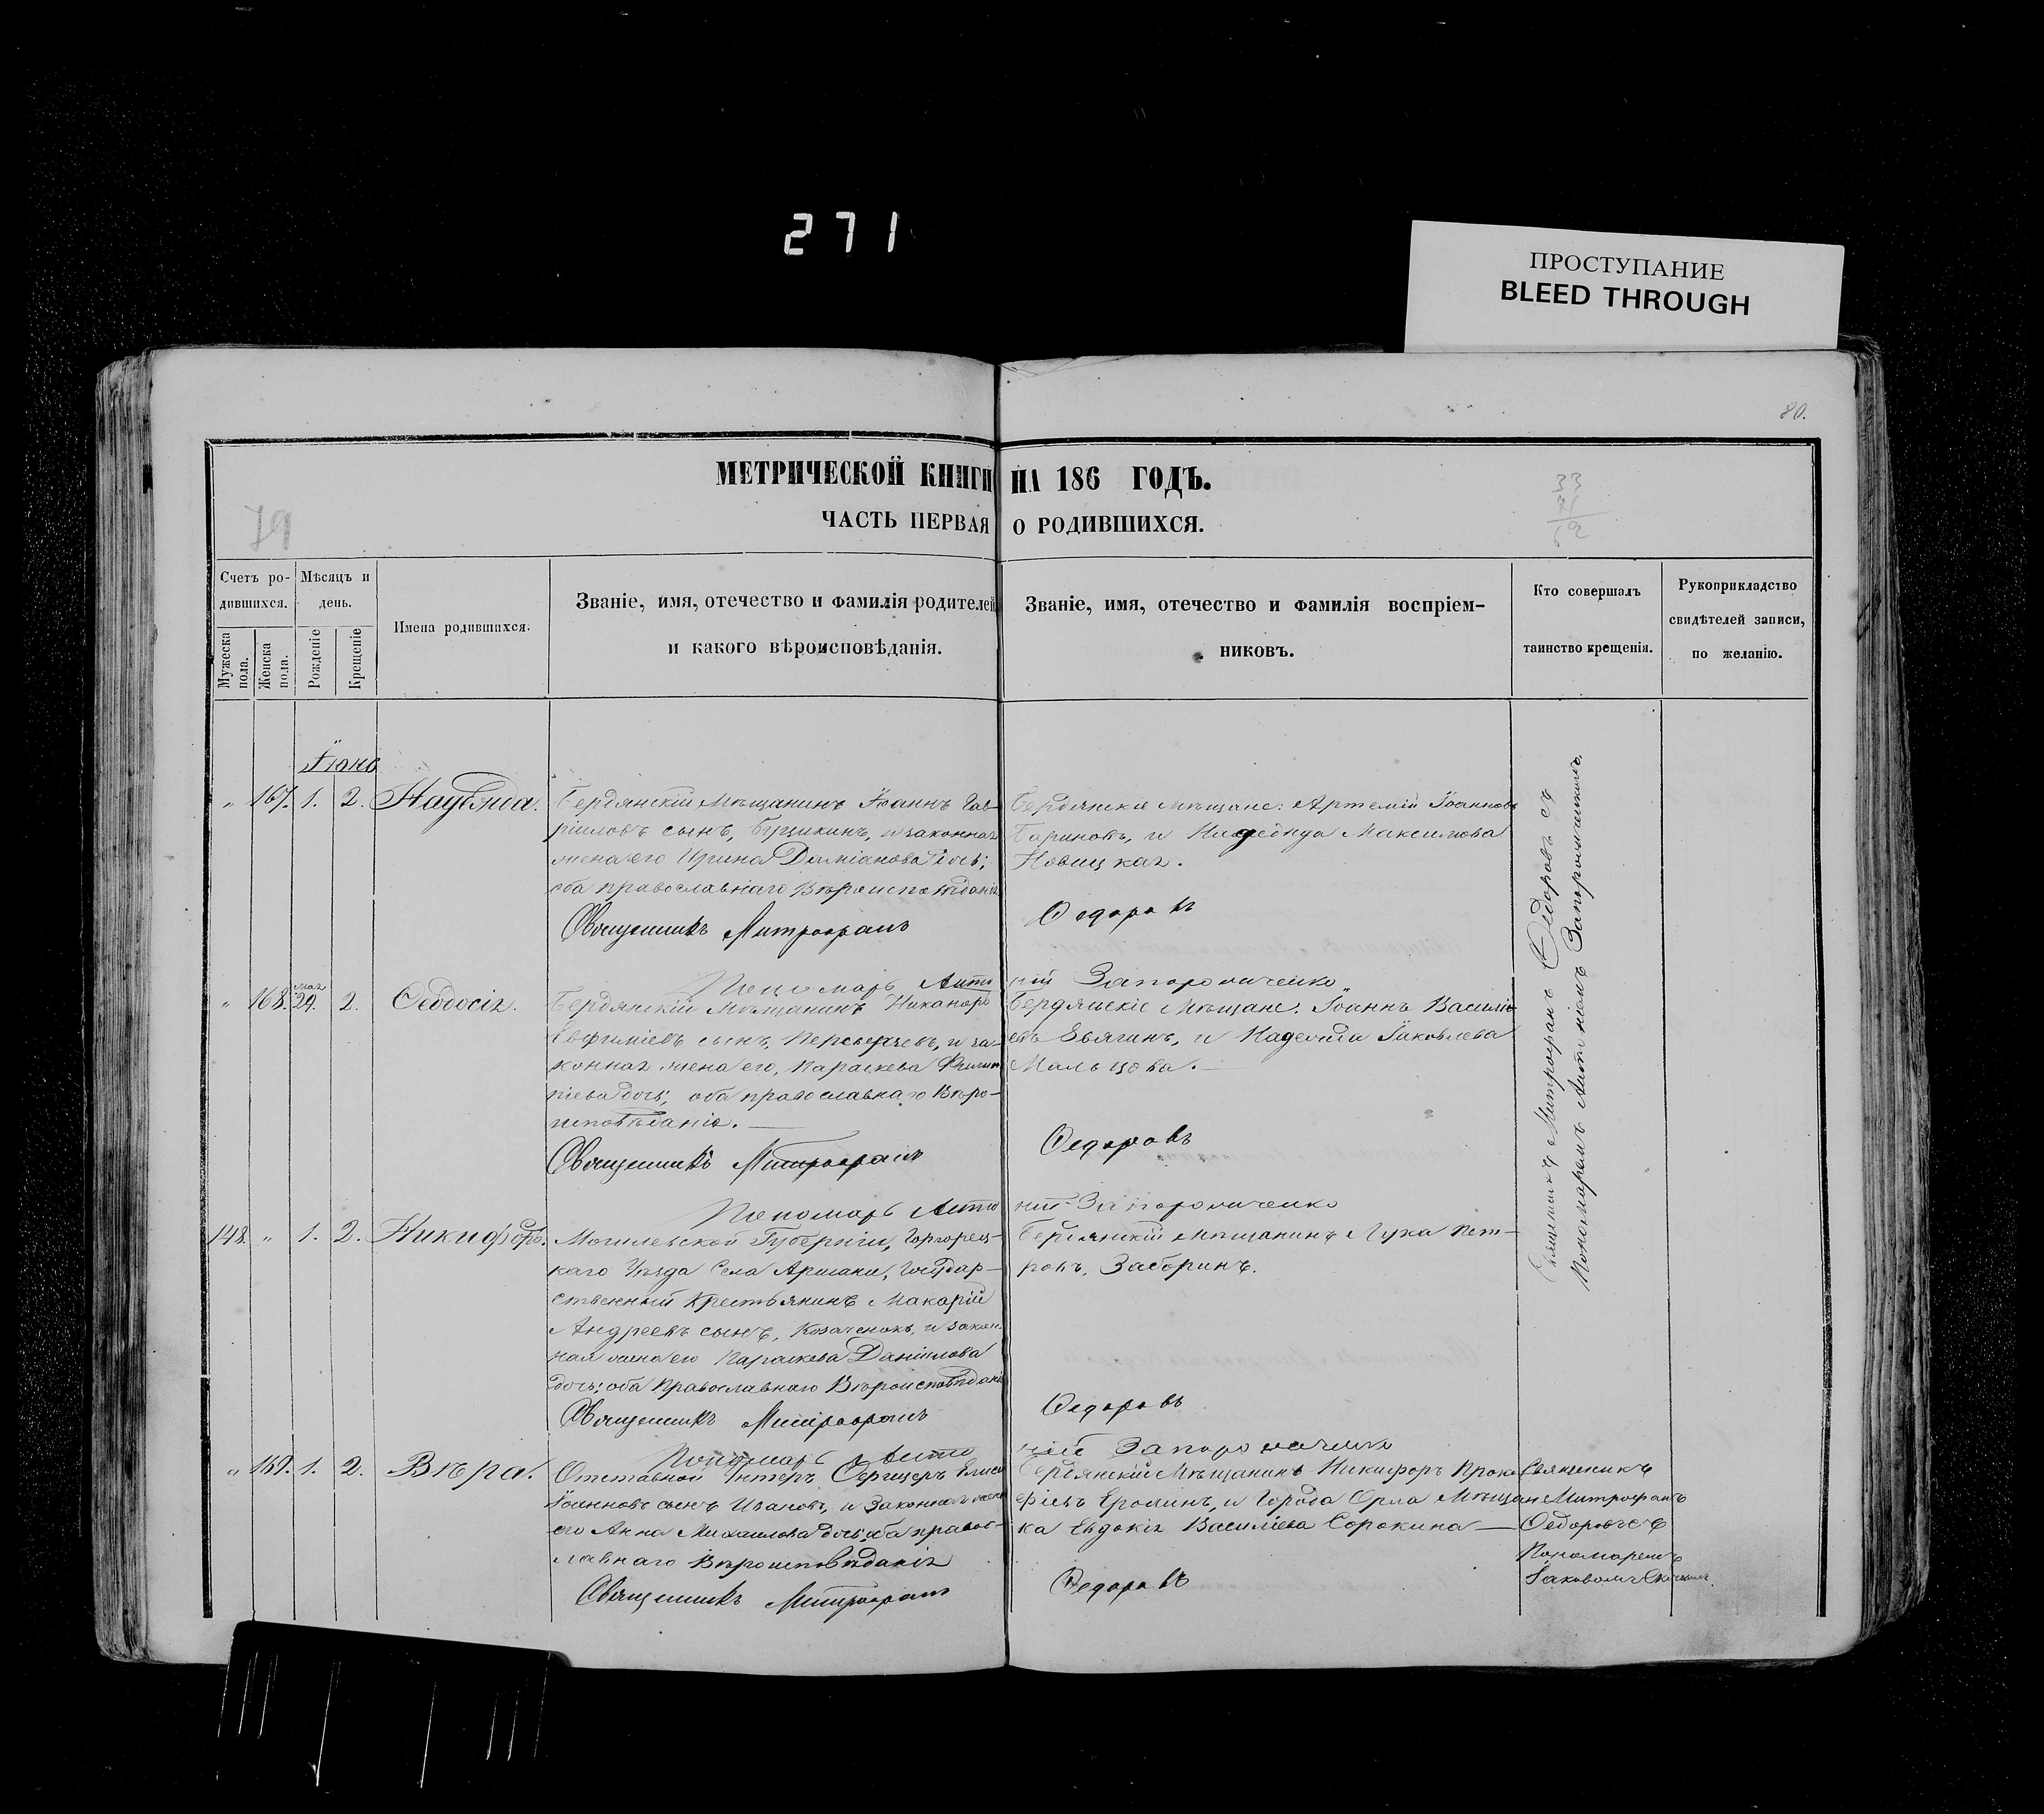 271
ПРОСТУПАНИЕ
BLEED THROUGH
80.
МЕТРИЧЕСКОЙ КНИГИ НА 186 ГОДЪ.
79
33
ЧАСТЬ ПЕРВАЯ О РОДИВШИХСЯ.
Счетъ ро-
дившихся.
Мужеска пола.
Женска пола.
Мѣсяцъ и
день.
Рожденіе
Крещеніе
Имена родившихся.
Званіе, имя, отечество и фамилія родителей
и какого вѣроисповѣданія.
Званіе, имя, отечество и фамилія воспріем-
никовъ.
Кто совершалъ
таинство крещенія.
Рукоприкладство
свидѣтелей записи,
по желанію.
„ 167. 1. 2.
Бердянскій Мѣщанинъ Іоаннъ Гав-
ріиловъ сынъ, и законная
жена его Ирина Даміанова дочь;
оба православнаго Вѣроисповѣданія
Священникъ Митрофанъ Федоровъ
Бердянскіе мѣщане: Артемій Іоанновъ
Бариновъ, и Надежда Максимова
Новицкая.
Пономарь Антоній Запорожченко
„ 168. мая 29. 2. Ѳеодосія.
Бердянскій Мѣщанинъ Никаноръ
Евфиміевъ сынъ, и за-
конная жена его, Параскева Филип-
піева дочь; оба православнаго Вѣро-
исповѣданія.
Священникъ Митрофанъ Федоровъ
Бердянскіе Мѣщане: Іоаннъ Василі-
евъ и Надежда Іаковлева
Мальцова.
Пономарь Антоній Запорожченко
148. „ 1. 2. Никифоръ.
Могилевской Губерніи, Горхорец-
каго Уѣзда Села Государ-
ственный Крестьянинъ Макарій
Андреевъ сынъ, Козаченокъ, и закон-
ная жена его Параскева Даніилова
дочь; оба Православнаго Вѣроисповѣданія
Священникъ Митрофанъ Федоровъ
Бердянскій мѣщанинъ Лука Пет-
ровъ, Заборинъ.
Пономарь Антоній Запорожченко
„ 169. 1. 2. Вѣра.
Отставной Унтеръ Офицеръ
Іоанновъ сынъ Ивановъ, и Законная жена
его Анна Михаилова дочь; оба правос-
лавнаго Вѣроисповѣданія
Священникъ Митрофанъ Федоровъ
Бердянскій Мѣщанинъ Никифоръ Проко-
фіевъ Еропинъ, и Города Орла Мѣщан-
ка Евдокія Василіева Сорокина
Священникъ Митрофанъ Ѳедоровъ съ
Пономаремъ Антоніемъ Запорожченкомъ.
Священникъ
Митрофанъ
Ѳедоровъ съ
Пономаремъ
Іаковомъ